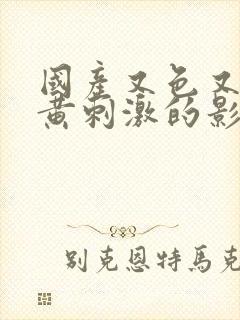 國產又色又
黃刺激的影
別克恩特馬克